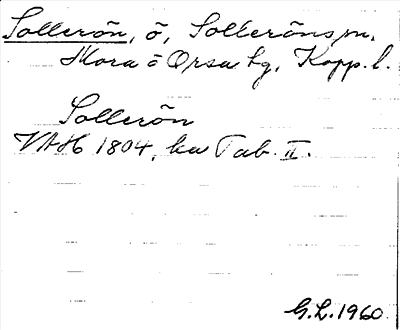 Sollerön, ö, Solleröns sn,
Mora o Orsa tg, Kopp. l.
Sollerön
VAH 1804, ka Tab. II.
G.L. 1960